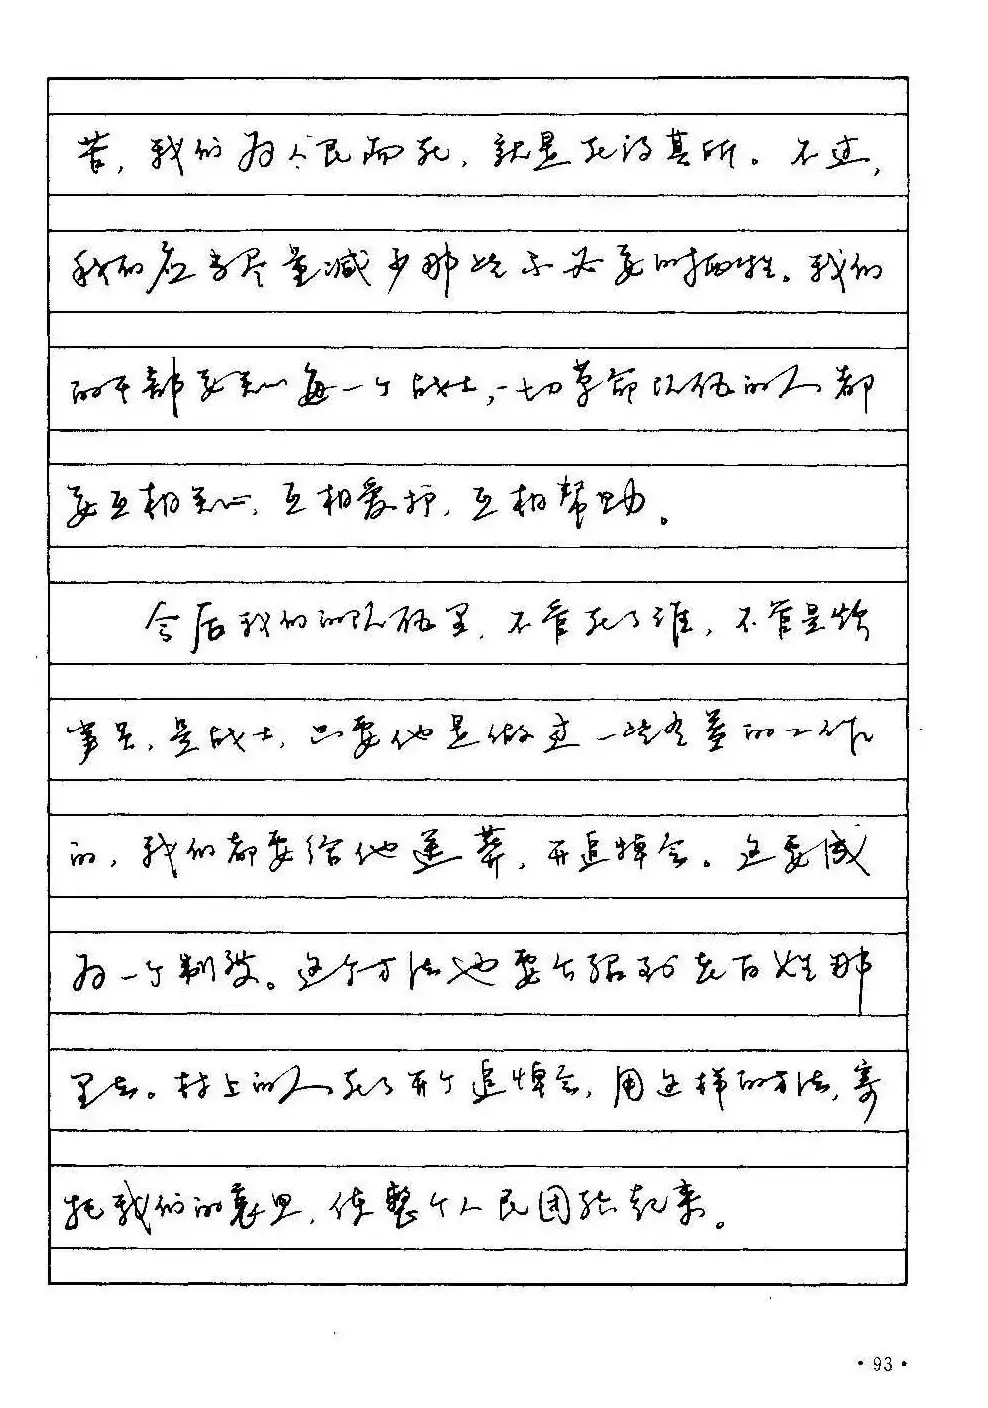 苦，我们为人民而死，就是死得其所。不过，
我们应当尽量减少那些不必要的牺牲。我们
的干部要关心每一个战士，一切革命队伍的人都
要互相关心，互相爱护，互相帮助。
今后我们的队伍里，不管死了谁，不管是炊
事员，是战士，只要他是做过一些有益的工作
的，我们都要给他送葬，开追悼会。这要成
为一个制度。这个方法也要介绍到老百姓那
里去。村上的人死了开个追悼会，用这样的方法，寄
托我们的哀思，使整个人民团结起来。
·93·